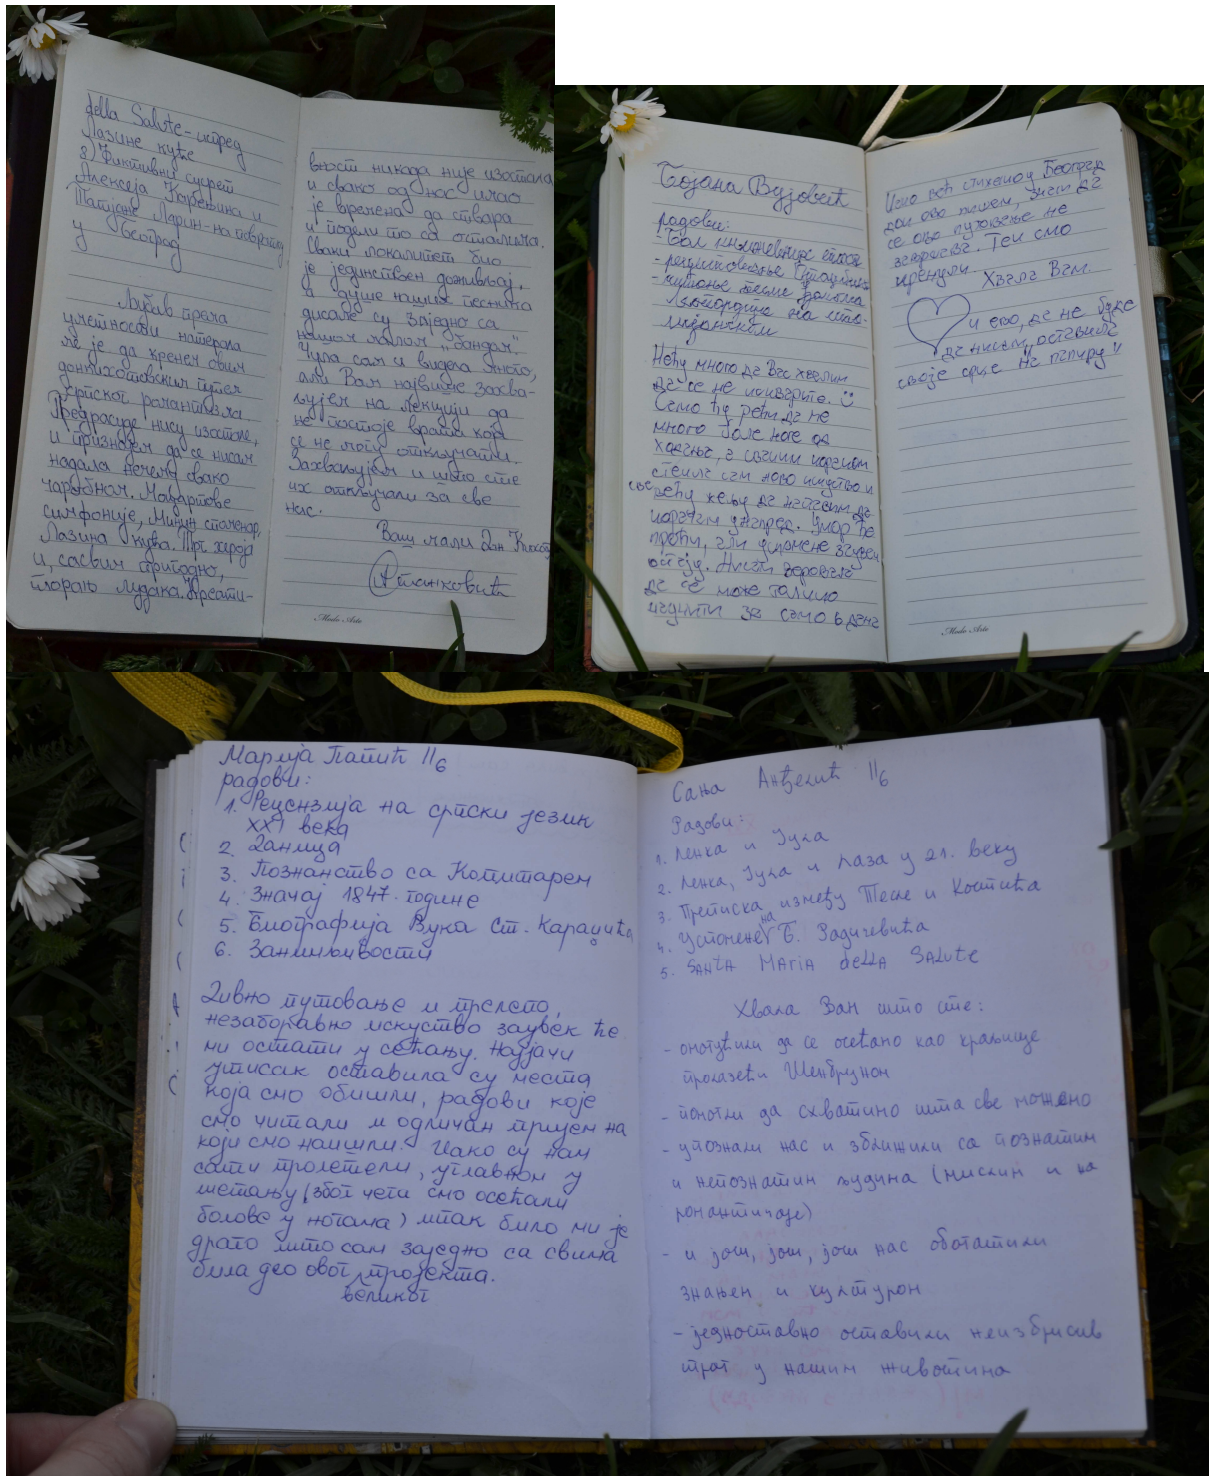 della Salute - испред
Лазине куће
3) Фиктивни сусрет
Алексеја Карењина и
Татјане Ларин - на повратку
у Београд
Љубав према
уметности натерала
ме је да кренем овим
донкихотовским путем
српског романтизма
Предрасуде нису изостале,
и признајем да се нисам
надала нечему овако
чаробном. Моцартове
симфоније, Минин споменар,
Лазина кућа. Трг хероја
и, сасвим природно,
торањ лудака. Креати-
вност никада није изостала
и свако од нас имао
је времена да ствара
и подели то са осталима.
Сваки локалитет био
је јединствен доживљај,
а душе наших песника
дисале су заједно са
нашом малом "бандом".
Чула сам и видела много,
али Вам највише захва-
љујем на лекцији да
не постоје врата која
се не могу откључати.
Захваљујем и што сте
их откључали за све
нас.
Ваш мали Дон Кихот
А Станковић
Modo Arte
Бојана Вујовић
радови:
- Бол
- рецитовање
- читање песме
на
Нећу много да Вас хвалим
да се не покварите. ☺
Само ћу рећи да ме
много боле ноге од
ходања, а сваким кораком
стекла сам ново искуство и
све већу жељу да наставим да
корачам унапред. Умор ће
проћи, али успомене заувек
остају. Нисам веровала
да се може толико
научити за само 6 дана
Иако већ стижемо у Београд
док ово пишем, знам да
се ово путовање не
завршава. Тек смо
кренули. Хвала Вам.
и ево, да не буде
да нисам, оставила
своје срце на папиру"
Modo Arte
Марија Папић II6
радови:
1. Рецензија на српски језик
XXI века
2. Даница
3. Познанство са Копитарем
4. Значај 1847. године
5. Биографија Вука Ст. Караџића
6. Занимљивости
Дивно путовање и прелепо,
незаборавно искуство заувек ће
ми остати у сећању. Најјачи
утисак оставила су места
која смо обишли, радови које
смо читали и одличан пријем на
који смо наишли. Иако су нам
сати пролетели, углавном у
шетању (због чега смо осећали
болове у ногама) ипак било ми је
драго што сам заједно са свима
била део овог великог пројекта.
Сања Анђелић II6
Радови:
1. Ленка и Јула
2. Ленка, Јула и Лаза у 21. веку
3. Преписка између Тесле и Костића
4. Успомене на Б. Радичевића
5. SANTA MAriA dellA SAlutE
Хвала Вам што сте:
- омогућили да се осећамо као краљице
пролазећи Шенбруном
- помогли да схватимо шта све можемо
- упознали нас и зближили са познатим
и непознатим људима (мислим и на
романтичаре)
- и још, још, још нас обогатили
знањем и културом
- једноставно оставили неизбрисив
траг у нашим животима